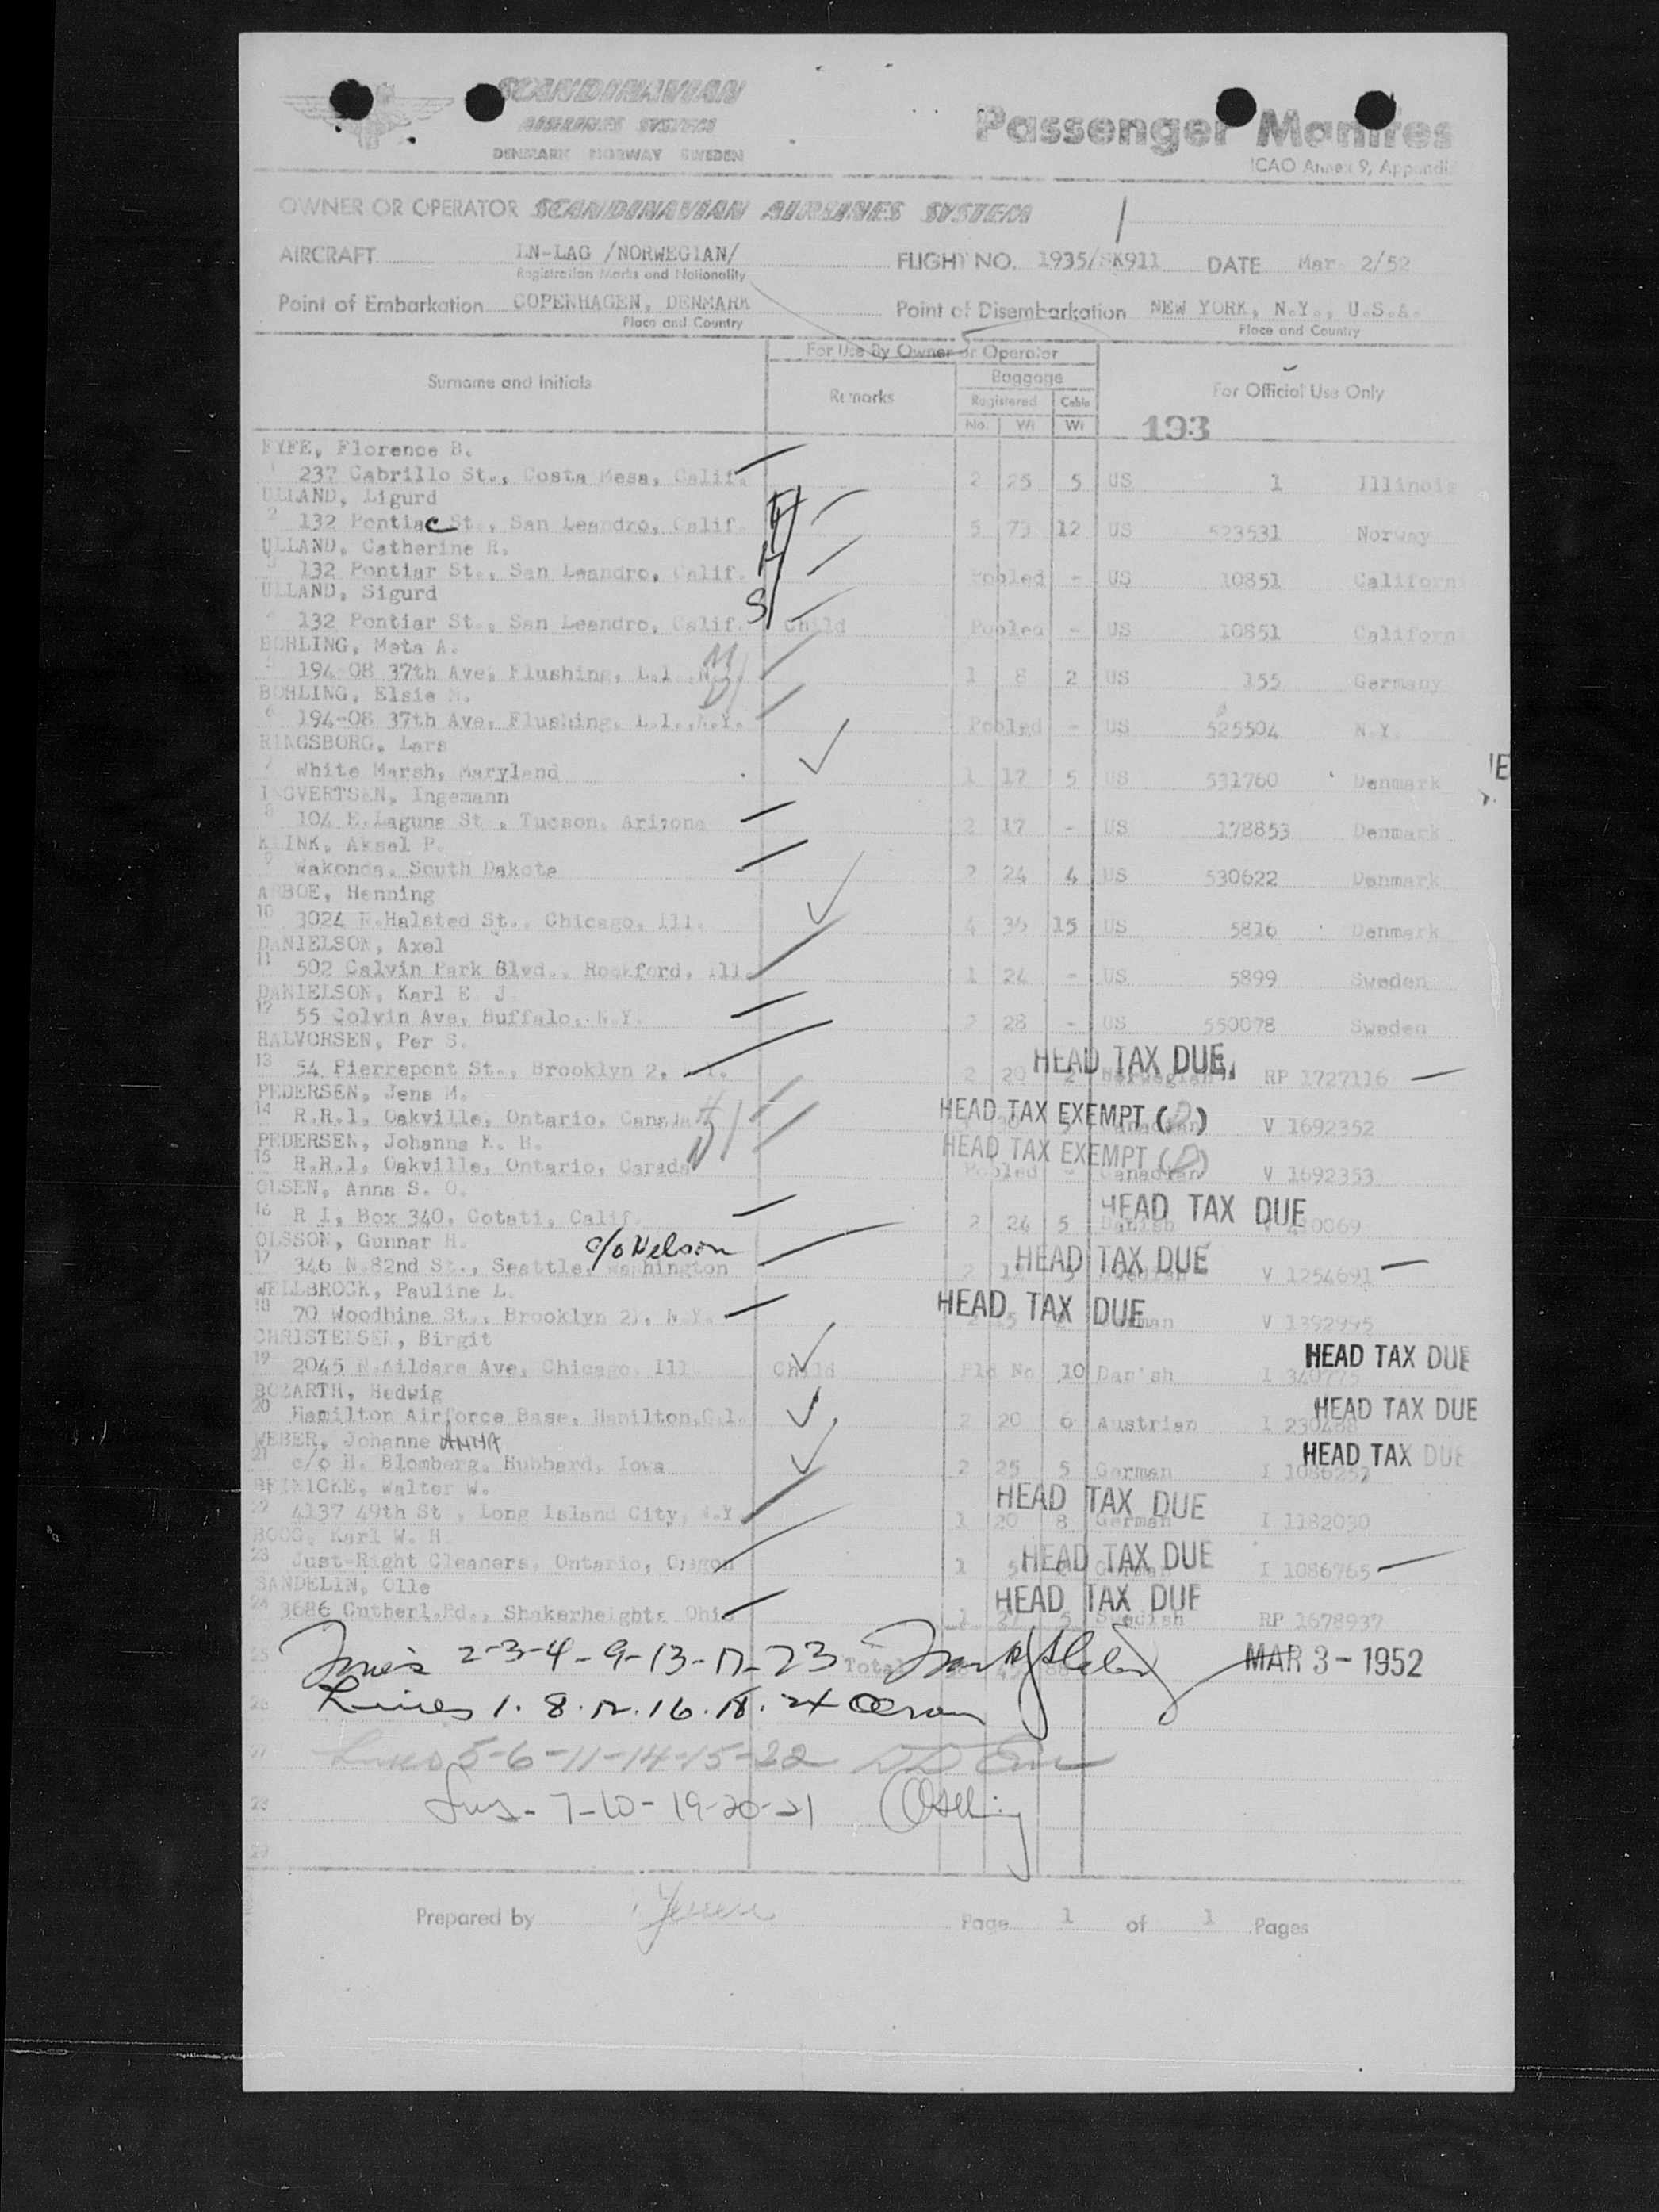 SCANDINAVIAN
AIRLINES SYSTEM
DENMARK NORWAY SWEDEN
Passenger Manifes
ICAO Annex 9, Appendi
OWNER OR OPERATOR SCANDINAVIAN AIRLINES SYSTEM
AIRCRAFT LN-LAG /NORWEGIAN/ FLIGHT NO. 1935/SK911 DATE Mar 2/52
Registration Marks and Nationality
Point of Embarkation COPENHAGEN, DENMARK Point of Disembarkation NEW YORK, N.Y., U.S.A.
Place and Country Place and Country
For Use By Owner or Operator
Surname and Initials Remarks Baggage For Official Use Only
Registered Cabin
No. Wt Wt 193
FYFE, Florence B.
1 237 Cabrillo St., Costa Mesa, Calif. 2 25 5 US 1 Illinois
ULLAND, Ligurd
2 132 Pontiac St., San Leandro, Calif. H 5 73 12 US 523531 Norway
ULLAND, Catherine R.
3 132 Pontiar St., San Leandro, Calif. Pooled - US 10851 Californ
ULLAND, Sigurd
4 132 Pontiar St., San Leandro, Calif. S Child Pooled - US 10851 Californ
BOHLING, Meta A.
5 194-08 37th Ave, Flushing, L.I. N.Y. 1 8 2 US 155 Germany
BOHLING, Elsie M.
6 194-08 37th Ave, Flushing, L.I., N.Y. Pooled - US 525504 N.Y.
RINGSBORG, Lars
7 White Marsh, Maryland 1 17 5 US 531760 Denmark
INGVERTSEN, Ingemann
8 104 E.Laguna St., Tucson, Arizona 2 17 - US 178853 Denmark
KLINK, Aksel P.
9 Wakonda, South Dakota 2 24 4 US 530622 Denmark
ARBOE, Henning
10 3024 N.Halsted St., Chicago, Ill. 4 15 US 5816 Denmark
DANIELSON, Axel
11 502 Calvin Park Blvd., Rockford, Ill. 1 24 - US 5899 Sweden
DANIELSON, Karl E J
12 55 Colvin Ave, Buffalo, N.Y. 2 28 - US 550078 Sweden
HALVORSEN, Per S.
13 54 Pierrepont St., Brooklyn 2, N.Y. 2 20 2 Norwegian HEAD TAX DUE, RP 1727116
PEDERSEN, Jens M.
14 R.R.1, Oakville, Ontario, Canada HEAD TAX EXEMPT (D) V 1692352
PEDERSEN, Johanne K. H.
15 R.R.1, Oakville, Ontario, Canada HEAD TAX EXEMPT (D) Pooled - Canadian V 1692353
OLSEN, Anna S. O.
16 R I, Box 340, Cotati, Calif. 2 24 5 Danish HEAD TAX DUE
OLSSON, Gunnar H. c/o Nelson
17 346 N.82nd St., Seattle, Washington 2 HEAD TAX DUE V 1254691
WELLBROCK, Pauline L.
18 70 Woodbine St., Brooklyn 21, N.Y. HEAD TAX DUE V 1392995
CHRISTENSEN, Birgit
19 2045 N.Kildare Ave, Chicago, Ill. Child Pld No 10 Danish I 340775 HEAD TAX DUE
BOZARTH, Hedwig
20 Hamilton Airforce Base, Hamilton, Cal. 2 20 6 Austrian I 230488 HEAD TAX DUE
WEBER, Johanne ANNA
21 c/o H. Blomberg, Hubbard, Iowa 2 25 5 German I 1086252 HEAD TAX DUE
REINICKE, Walter W.
22 4137 49th St., Long Island City, N.Y. 1 20 8 German HEAD TAX DUE I 1182030
Karl W. H
23 Just-Right Cleaners, Ontario, Oregon 1 5 German HEAD TAX DUE I 1086765
SANDELIN, Olle
24 3686 Rd., Shakerheights Ohio 1 5 Swedish HEAD TAX DUE RP 1678937
25 Lines 2-3-4-9-13-17-23 Total MAR 3-1952
26 Lines 1. 8. 12. 16. 18. 24
27 Lines 5-6-11-14-15-22
28 Lines - 7-10-19-20-21
29
Prepared by Page 1 of 1 Pages